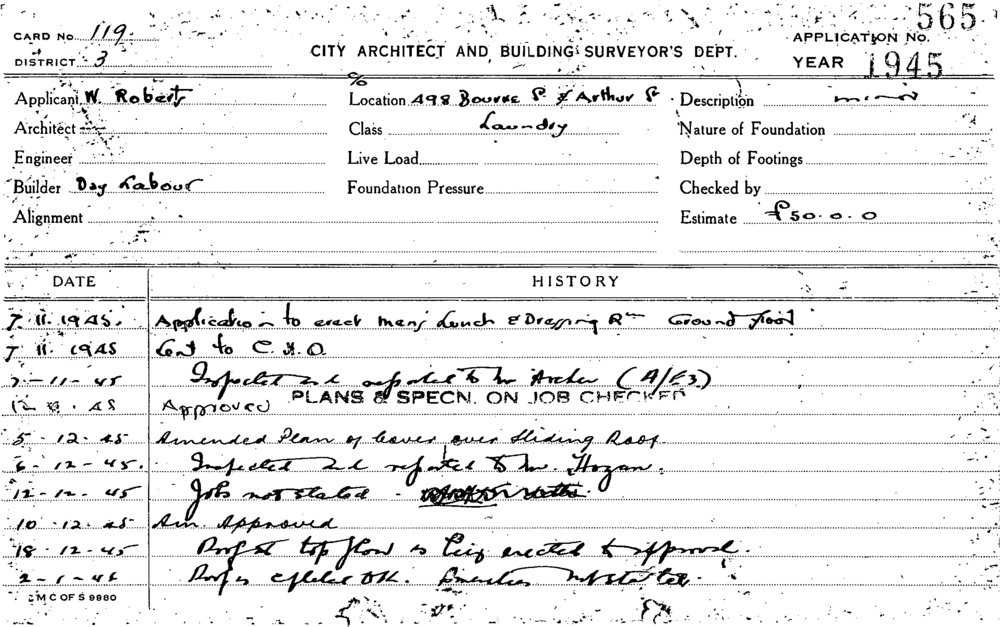 565
CARD No. 119.
APPLICATION NO.
DISTRICT 3
CITY ARCHITECT AND BUILDING SURVEYOR'S DEPT.
YEAR 1945
Applicant W. Roberts
Location 498 Bourke St & Arthur St
Description minor
Architect
Class Laundry
Nature of Foundation
Engineer
Live Load
Depth of Footings
Builder Day Labour
Foundation Pressure
Checked by
Alignment
Estimate £50.0.0
DATE HISTORY
7.11.1945. Application to erect mens Lunch & Dressing Rm Ground floor
7.11.1945 Sent to C.H.O.
7-11-45 Inspected and reported to Mr Archer (A/E3)
PLANS & SPECN. ON JOB CHECKED
45 Approved
5-12-45 Amended Plan of Cover over Sliding Roof.
6-12-45. Inspected and reported to Mr. Hogan.
12-12-45 Job not started.
10.12.45 Am. Approved
18-12-45 Roof at top floor is being erected to approval.
2-1-46 Roof is OK. not started.
M C OF S 9980